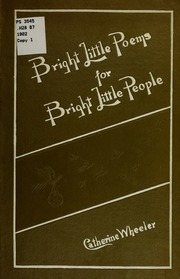 PS 3545
.H28 B7
1902
Copy 1
Bright Little Poems
for
Bright Little People
Catherine Wheeler